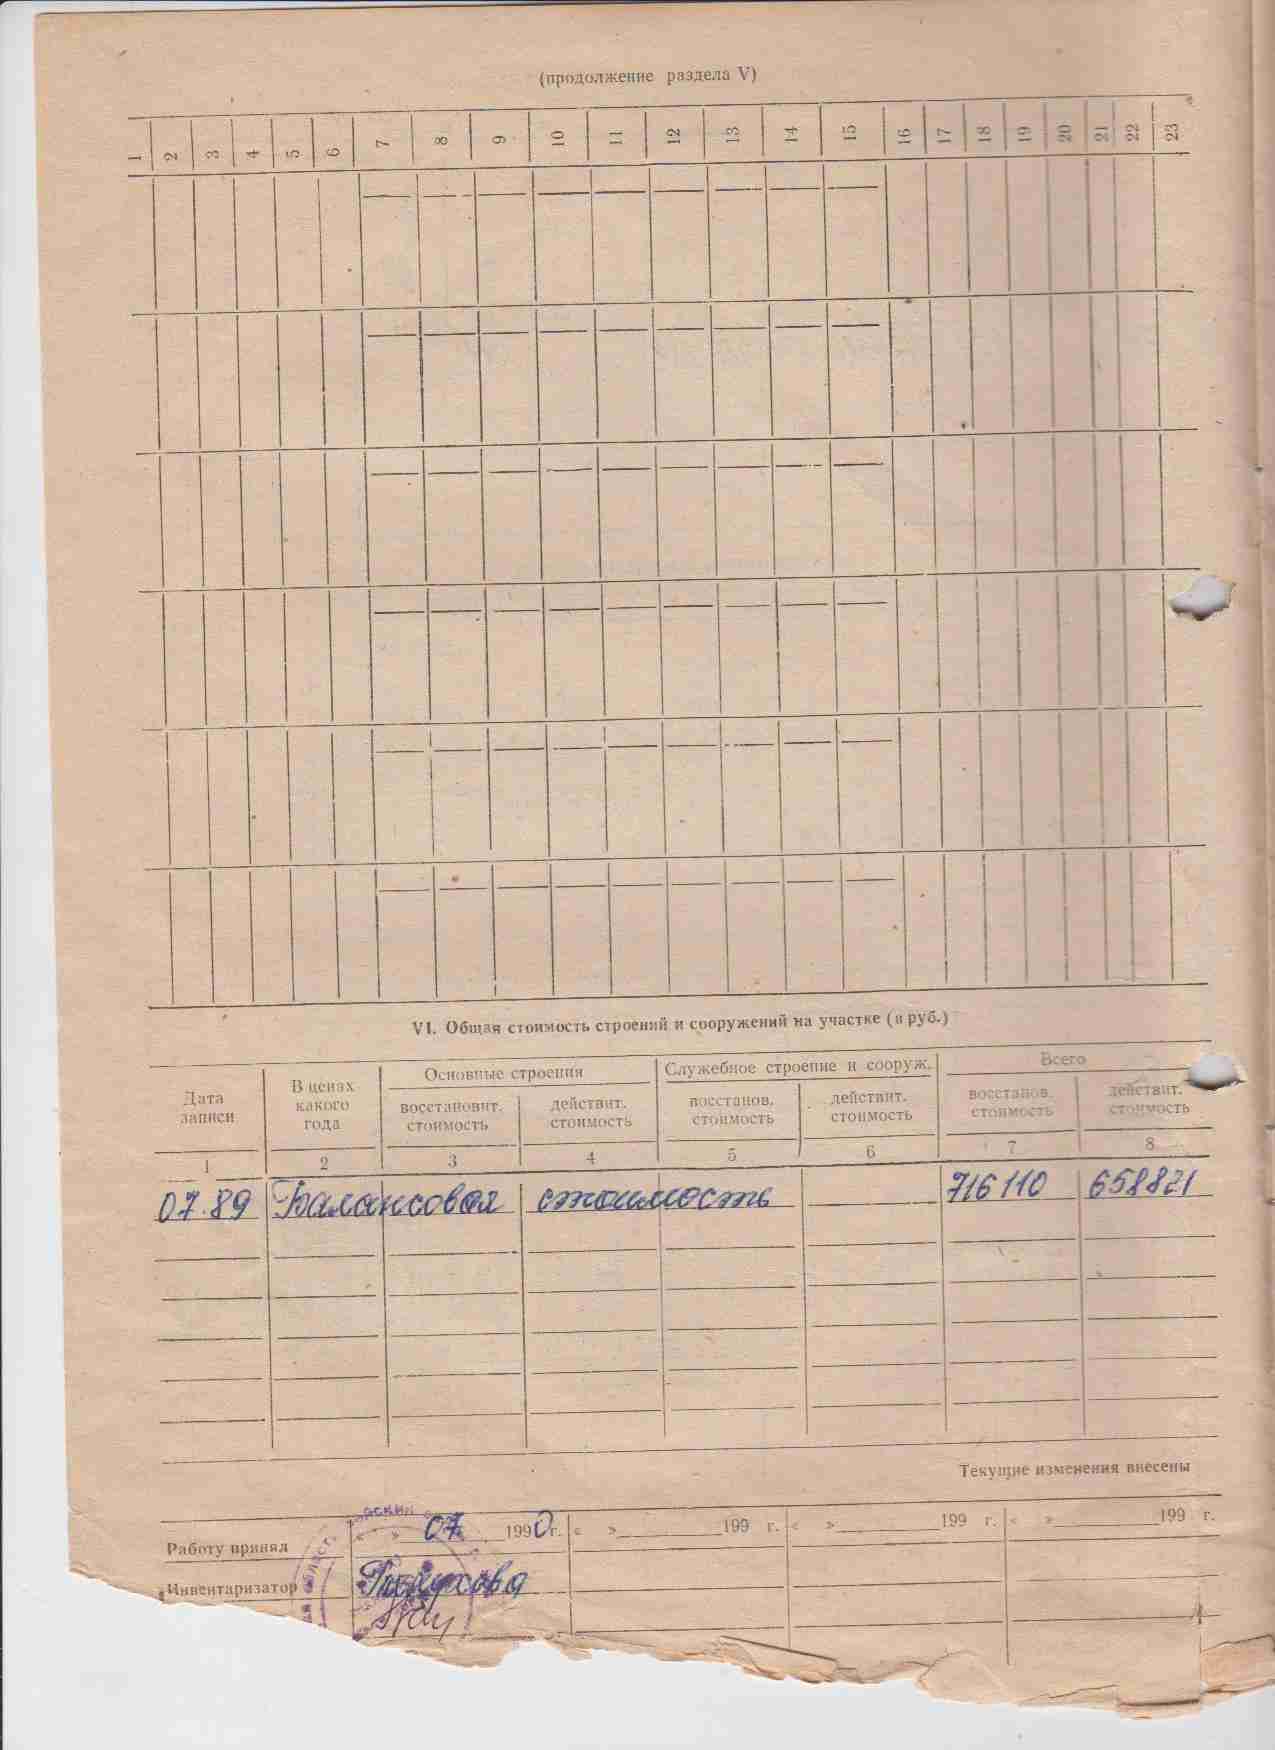 (продолжение раздела V)
1 2 3 4 5 6 7 8 9 10 11 12 13 14 15 16 17 18 19 20 21 22 23
VI. Общая стоимость строений и сооружений на участке (в руб.)
Дата записи В ценах какого года Основные строения Служебное строение и сооруж. Всего
восстановит. стоимость действит. стоимость восстанов. стоимость действит. стоимость восстанов. стоимость действит. стоимость
1 2 3 4 5 6 7 8
07.89 Балансовая стоимость 716110 658821
Текущие изменения внесены
Работу принял « » 07 1990г. « » 199 г. « » 199 г. « » 199 г.
Инвентаризатор